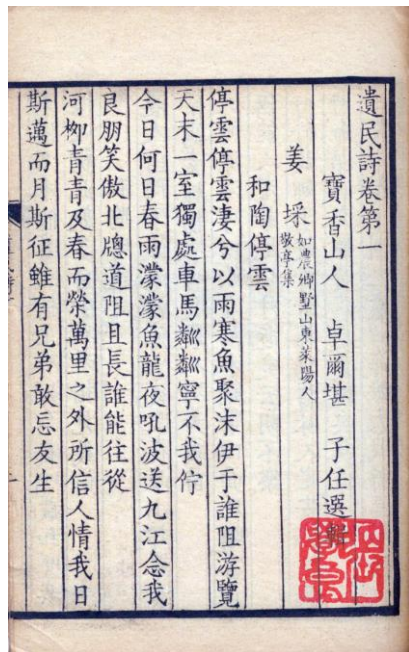 遺民詩卷第一
寶香山人 卓爾堪 子任選輯
姜埰 如農鄉墅山東萊陽人
敬亭集
和陶停雲
停雲停雲淒兮以雨寒魚聚沫伊于誰阻游覽
天末一室獨處車馬粼粼寧不我佇
今日何日春雨濛濛魚龍夜吼波送九江念我
良朋笑傲北牕道阻且長誰能往從
河柳青青及春而榮萬里之外所信人情我日
斯邁而月斯征雖有兄弟敢忘友生